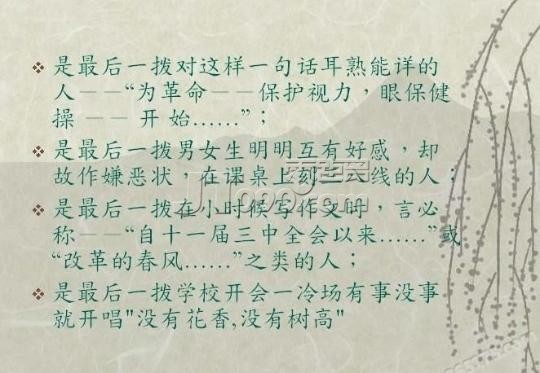 是最后一拨对这样一句话耳熟能详的
人——“为革命——保护视力，眼保健
操 —— 开 始……”；
是最后一拨男女生明明互有好感，却
故作嫌恶状，在课桌上刻三八线的人；
是最后一拨在小时候写作文时，言必
称——“自十一届三中全会以来……”或
“改革的春风……”之类的人；
是最后一拨学校开会一冷场有事没事
就开唱"没有花香,没有树高"